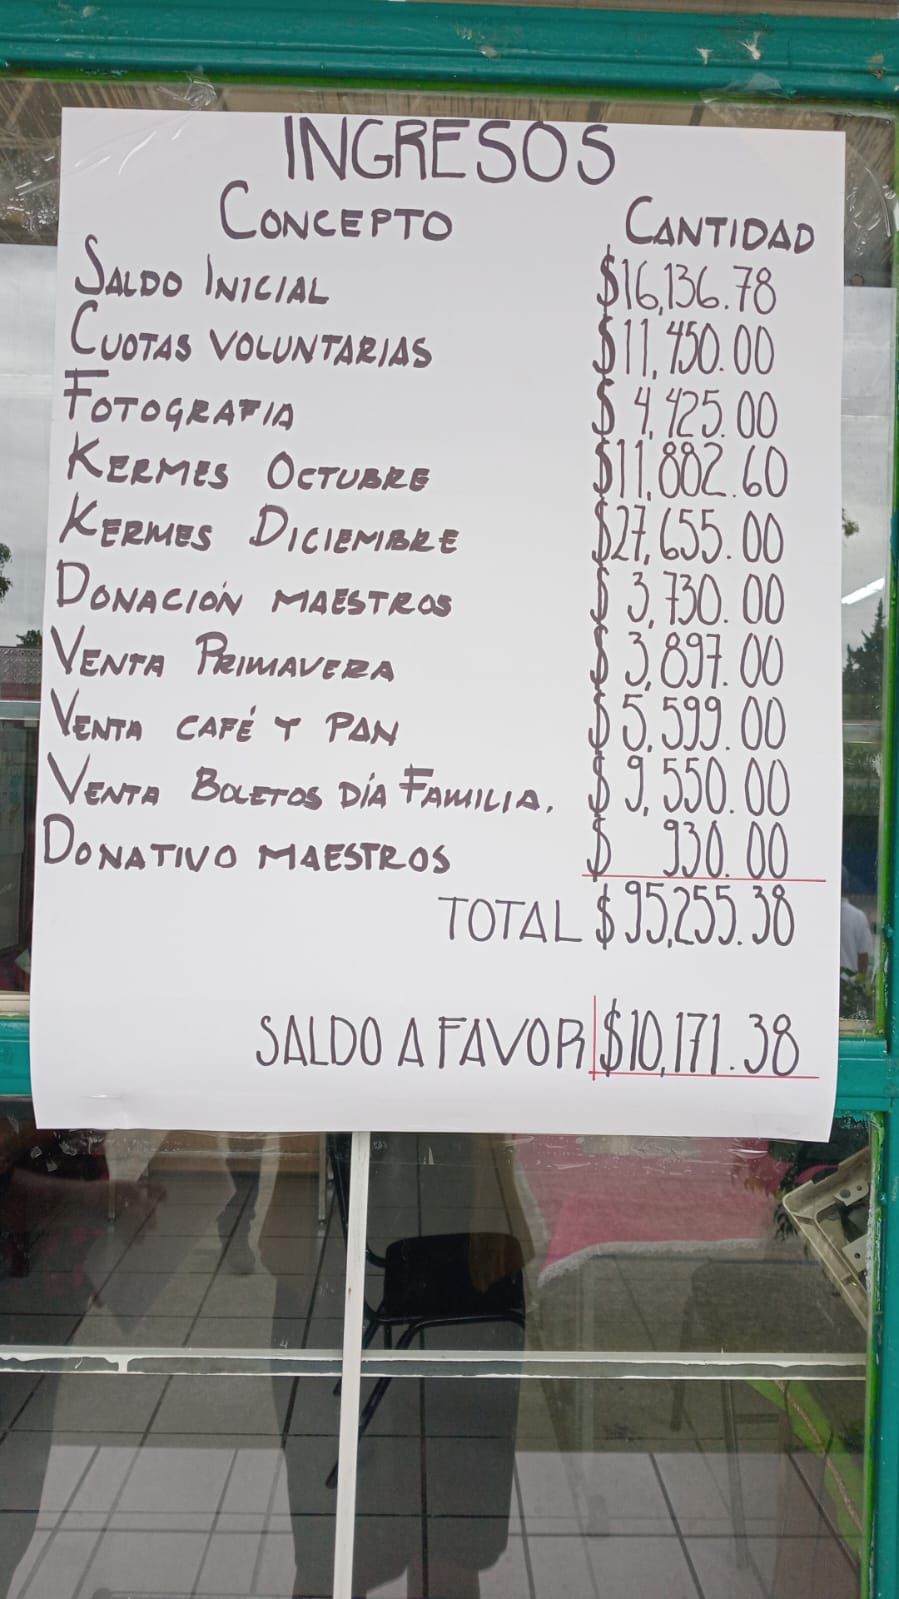 INGRESOS
CONCEPTO CANTIDAD
SALDO INICIAL $16,136.78
CUOTAS VOLUNTARIAS $11,450.00
FOTOGRAFIA $ 4,425.00
KERMES OCTUBRE $11,882.60
KERMES DICIEMBRE $27,655.00
DONACIÓN MAESTROS $ 3,730.00
VENTA PRIMAVERA $ 3,897.00
VENTA CAFÉ Y PAN $ 5,599.00
VENTA BOLETOS DÍA FAMILIA. $ 9,550.00
DONATIVO MAESTROS $ 930.00
TOTAL $95,255.38
SALDO A FAVOR $10,171.38